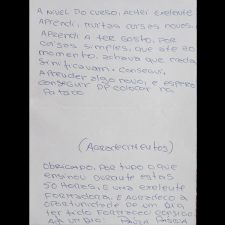 A NIVEL DO CURSO, ACHEI EXELENTE
APRENDI, MUITAS COISAS NOVAS.
APRENDI A TER GOSTO, POR
COISAS SIMPLES, QUE ATÉ AO
MOMENTO, ACHAVA QUE NADA
SINIFICAVAM. CONSEGUI,
APRENDER ALGO NOVO, E ESPERO
CONSEGUIR COLOCAR NA
(AGRADECIMENTOS)
OBRIGADO, POR TUDO O QUE
ENSINOU DURANTE ESTAS
50 HORAS, E UMA EXELENTE
FORMADORA, E AGRADEÇO A
OPORTUNIDADE DE UM DIA
TER TIDO FORMAÇÃO CONSIGO.
ATÉ UM DIA.